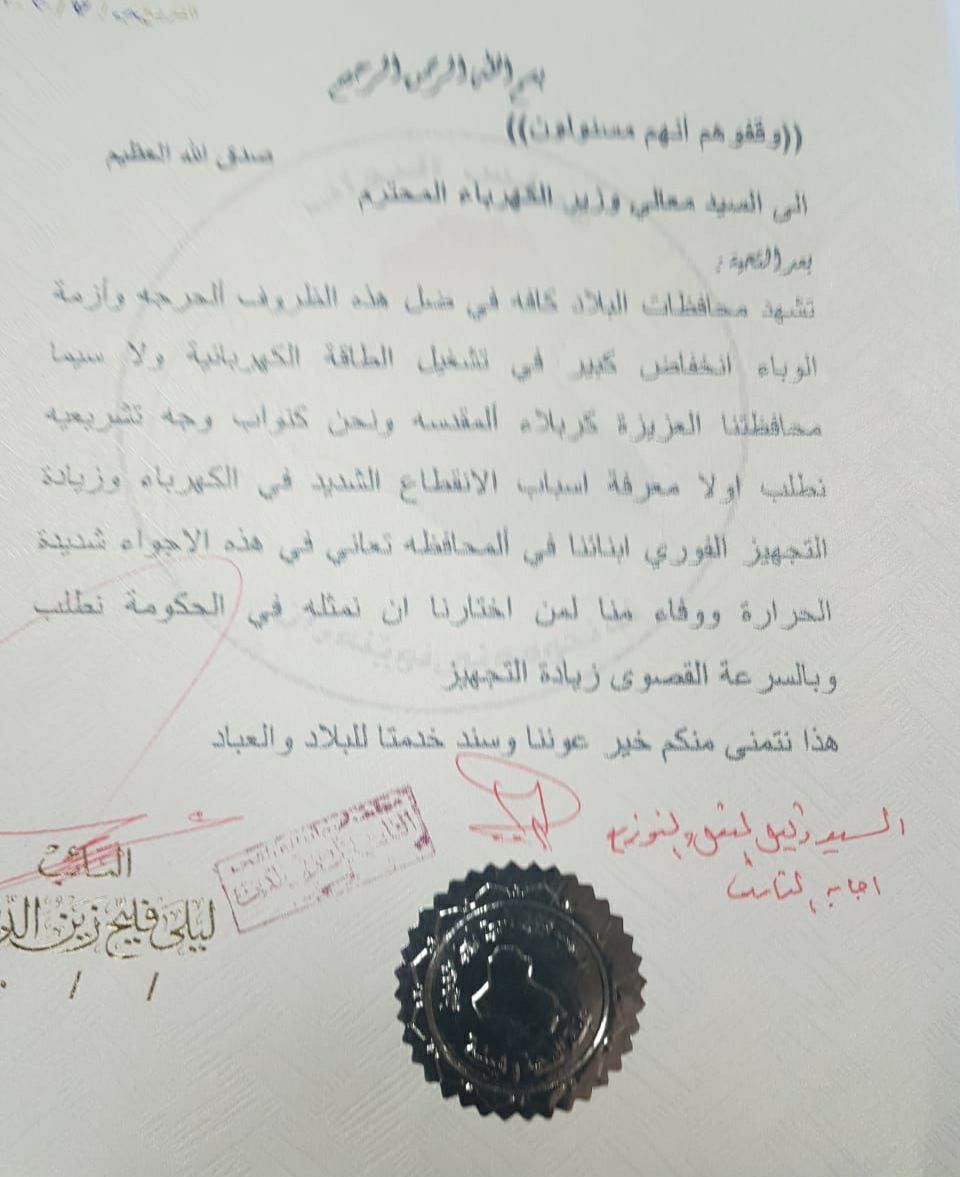 بسم الله الرحمن الرحيم
((وقفوهم انهم مسئولون))
صدق الله العظيم
الى السيد معالي وزير الكهرباء المحترم
بعد التحية :
تشهد محافظات البلاد كافه في ضل هذه الظروف الحرجه وأزمة
الوباء انخفاض كبير في تشغيل الطاقة الكهربائية ولا سيما
محافظتنا العزيزة كربلاء ألمقدسه ونحن كنواب وجه تشريعيه
نطلب اولا معرفة اسباب الانقطاع الشديد في الكهرباء وزيادة
التجهيز الفوري ابنائنا في ألمحافظه تعاني في هذه الاجواء شديدة
الحرارة ووفاء منا لمن اختارنا ان نمثله في الحكومة نطلب
وبالسرعة القصوى زيادة التجهيز
هذا نتمنى منكم خير عوننا وسند خدمتا للبلاد والعباد
السيد وكيل
النائب
ليلى فليح زين
/ /